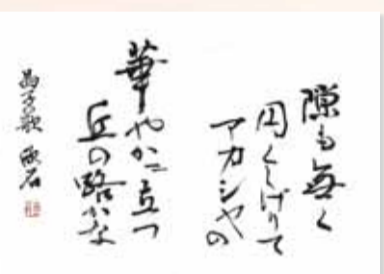 隙も無く
円くしげりて
アカシヤの
華やかに立つ
丘の路かな
晶子歌